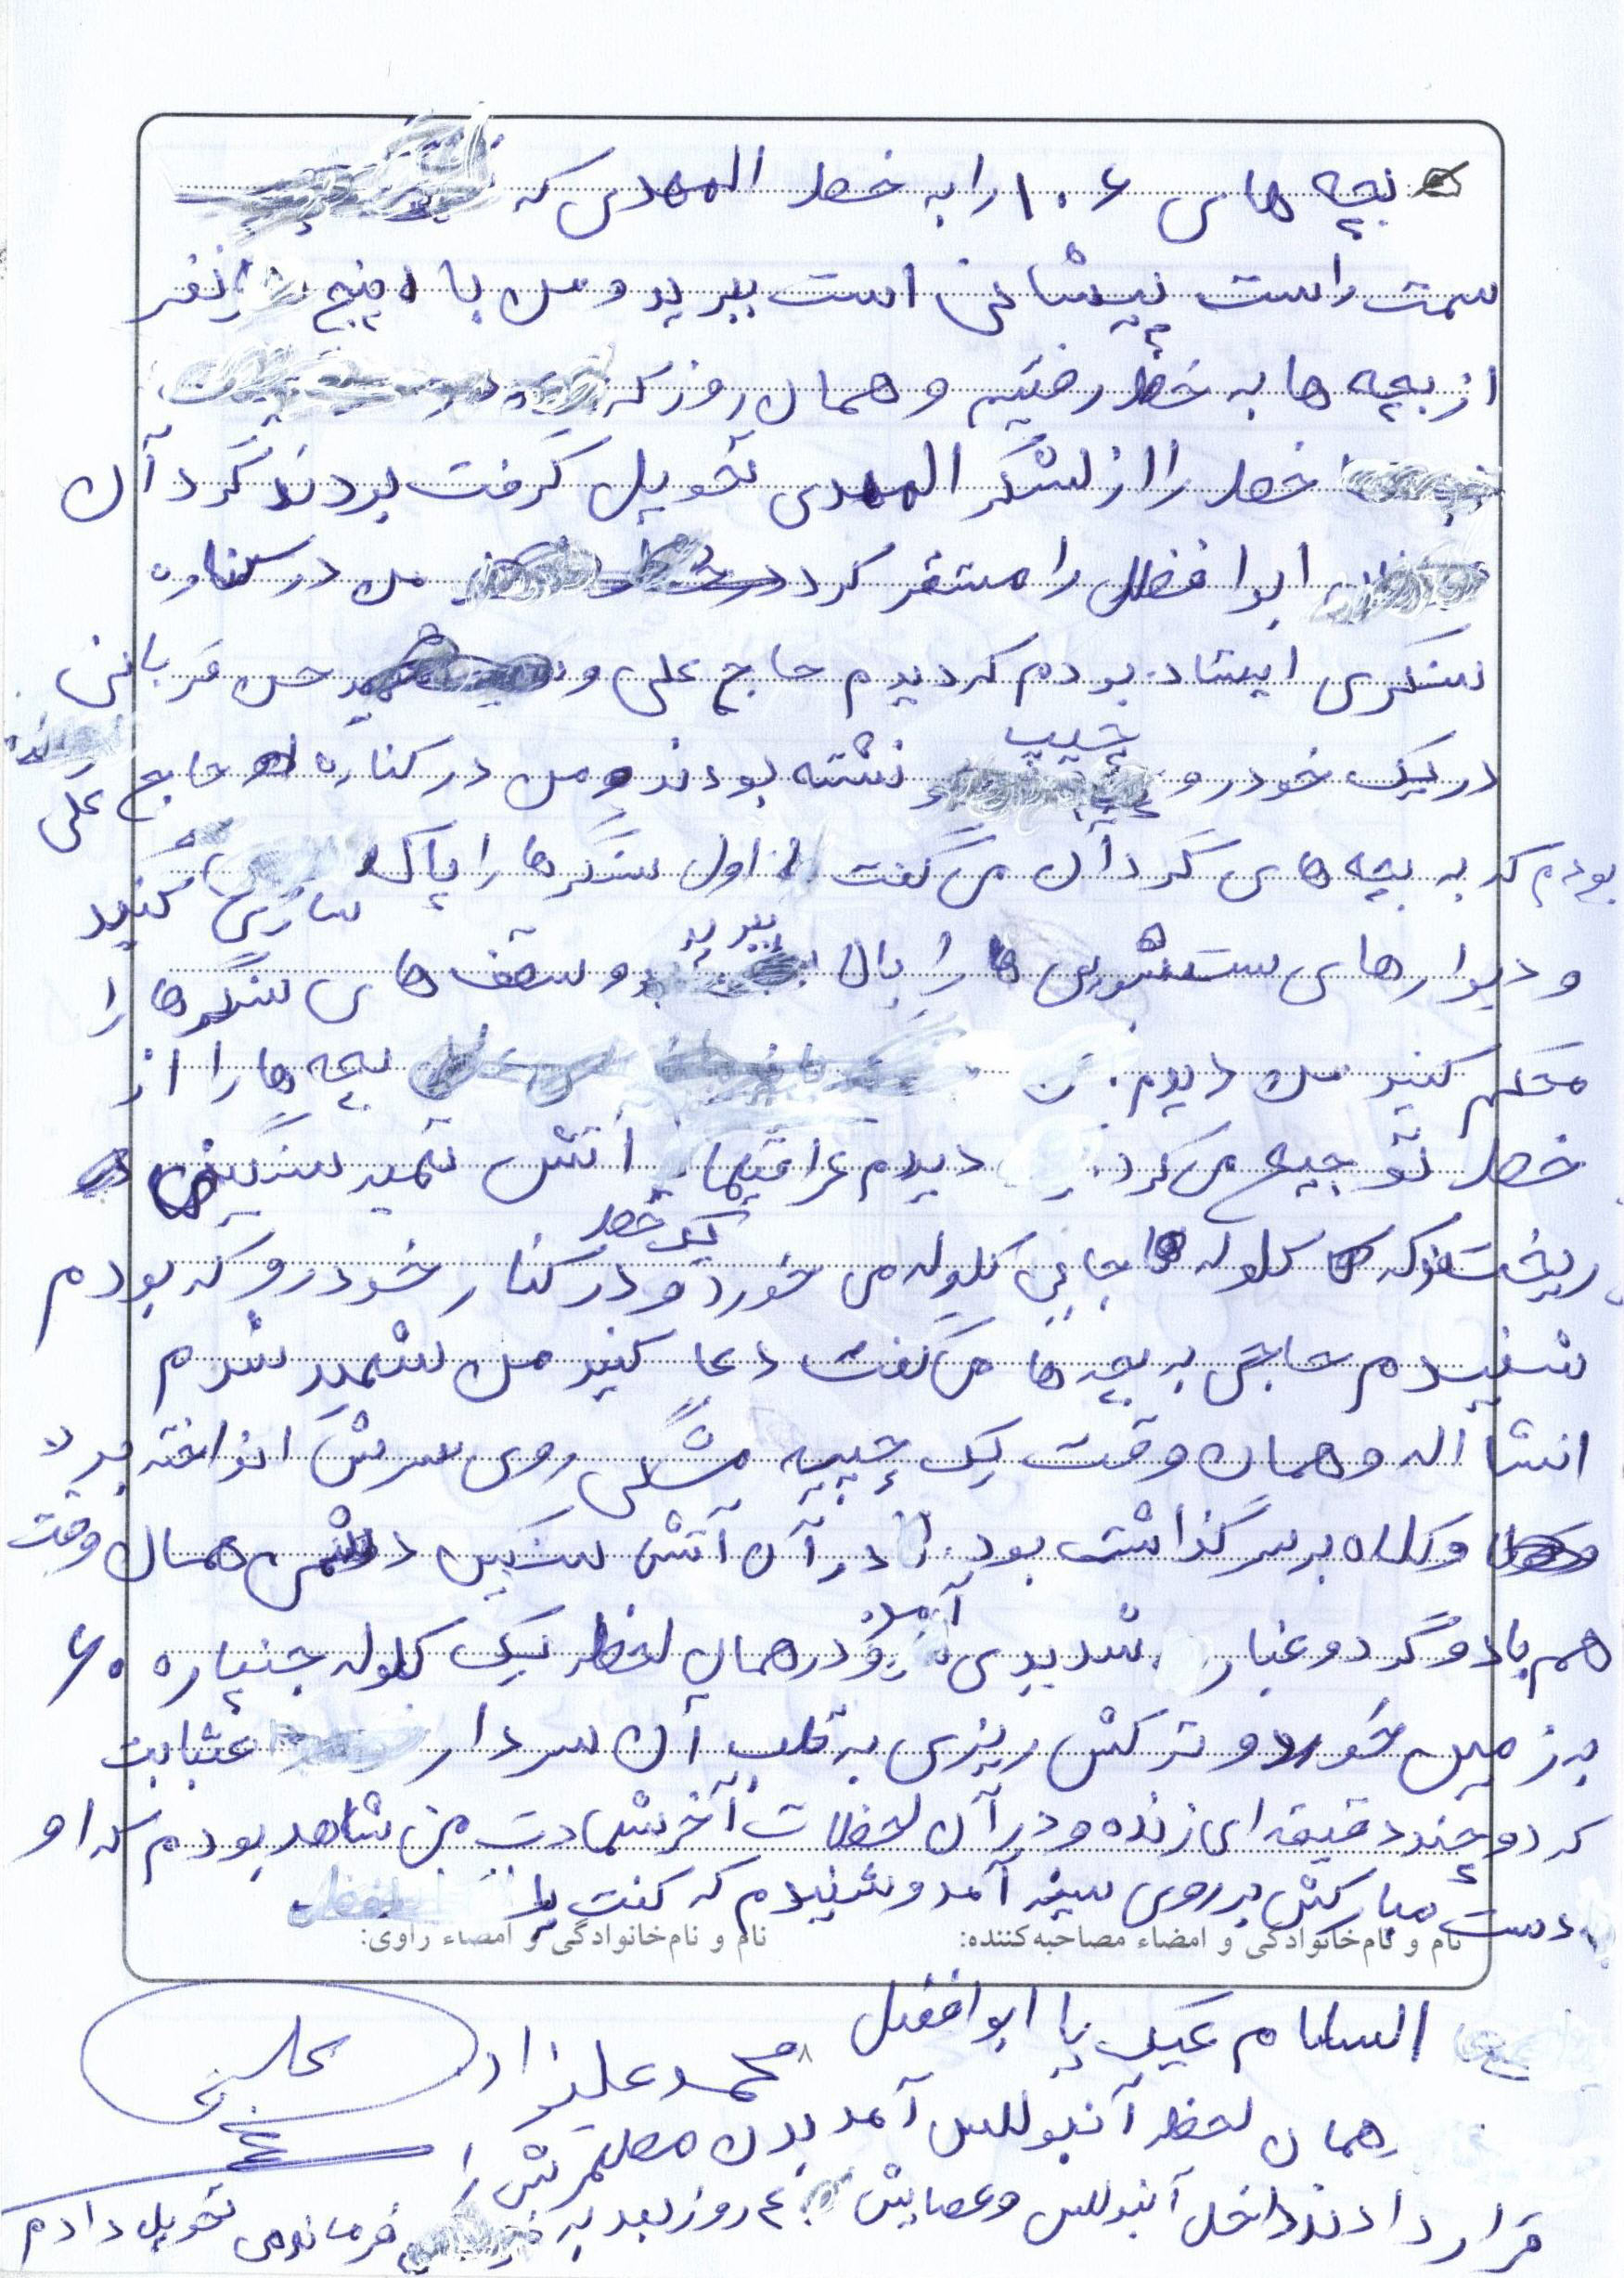 بچه های ۱۰۶ را به خط المهدی که
سمت راست پیشانی است ببرید و من با پنج نفر
از بچه ها به خط رفتیم و همان روز که
خط را از لشگر المهدی تحویل گرفت بودند گردآن
ابوافضل را مستقر کرد من در کناره
سنگری ایستاد بودم که دیدم حاج علی و حسن قربانی
در یک خودرو جیپ نشته بودند و من در کناره حاج علی
بودم که به بچه های گردآن می گفت اول سنگرها را پاک سازی کنید
و دیوارهای ستشویی ها را بالا ببرید و سقف های سنگرها را
محکم کنید من دیدم بچه ها را از
خط توجیح می کرد. دیدم عراقیها آتش تهیه سنگینی
ریخت که گلوله جایی گلوله می خورد و در کنار خودرو که بودم
یک خط
شنیدم حاجی به بچه ها می گفت دعا کنید من شهید شدم
انشا اله و همان وقت یک چپیه مشگی روی سرش انداخته بود
و کلاه بر سر گذاشت بود. در آن آتش سنگین دشمن همان وقت
هم باد و گرد و غبار شدیدی آمد و در همان لحظه یک گلوله خنپاره ۶۰
به زمین خورد و ترکش ریزی به قلب آن سردار عثابت
که دو چند دقیقه ای زنده و در آن لحظات آخر شهادت من شاهد بودم که او
دست مبارکش بر روی سینه آمد و شنیدم که گفت یا
نام و نام‌خانوادگی و امضاء مصاحبه‌کننده: نام و نام‌خانوادگی و امضاء راوی:
السلام علیک یا ابوافضل
محمد علیزاد
همان لحظه آنبولاس آمد بدن مطهرش را
قرار دادند داخل آنبولاس و عصایش ۴ روز بعد به فرماندهی تحویل دادم